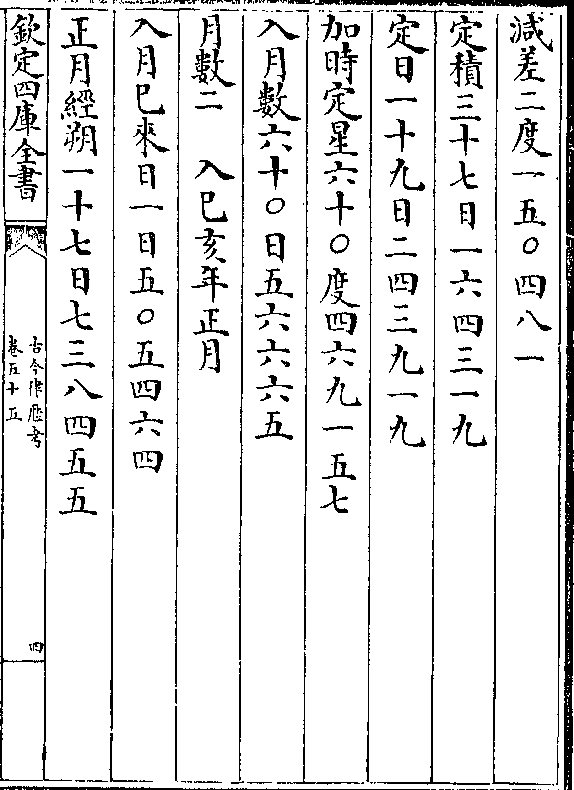 減差二度一五〇四八一
定積三十七日一六四三一九
定日一十九日二四三九一九
加時定星六十〇度四六九一五七
入月數六十〇日五六六六五
月數二　入巳亥年正月
入月已來日一日五〇五四六四
正月經朔一十七日七三八四五五
欽定四庫全書
古今律歷考
卷五十五
四